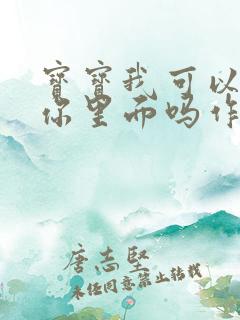 宝宝我可以
你里而吗作
唐志坚
未经同意禁止转载